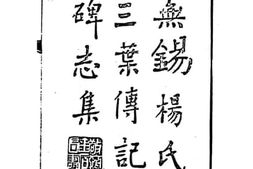 無錫楊氏
三葉傳記
碑志集